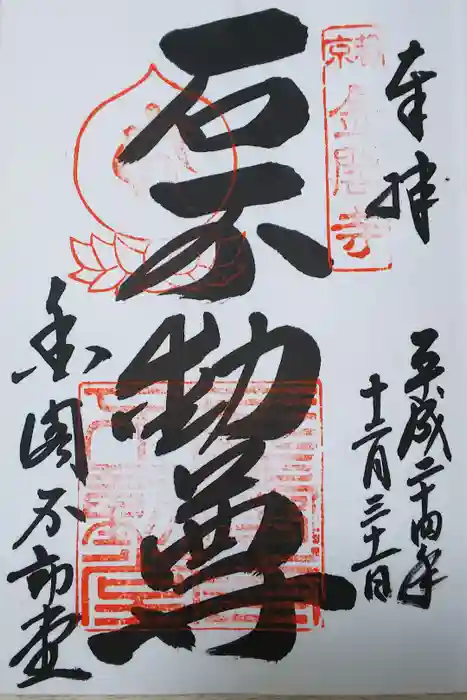 奉拝
金閣寺
平成二十四年
十二月三十一日
石不動尊
金閣不動堂